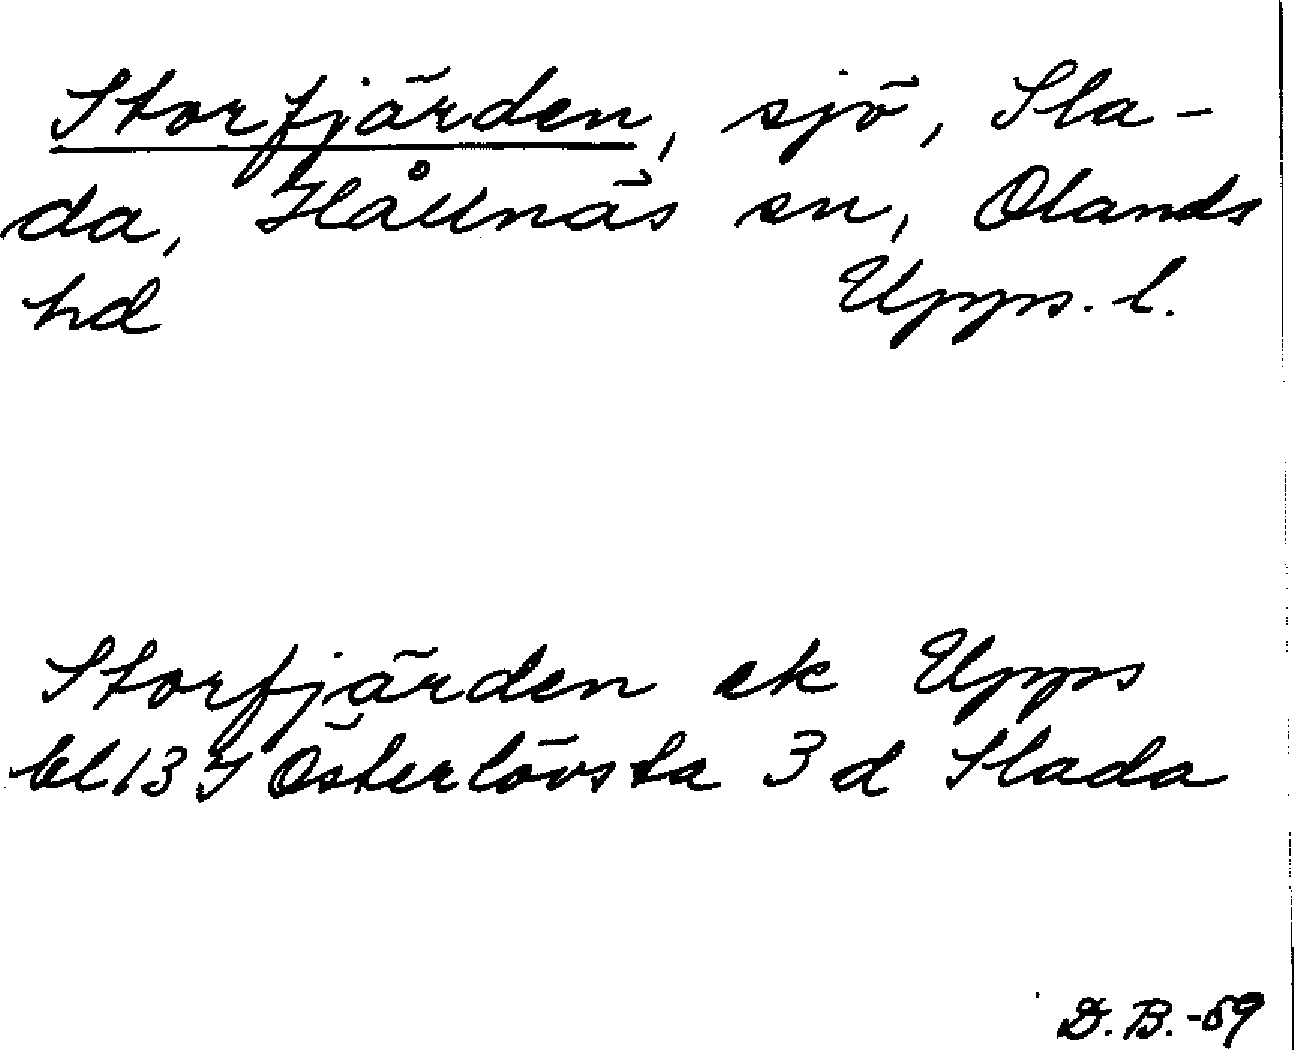 Storfjärden, sjö, Sla-
da, Hållnäs sn, Olands
hd Upps. l.
Storfjärden ek Upps
bl 13 I Österlövsta 3 d Slada
D. B. -59